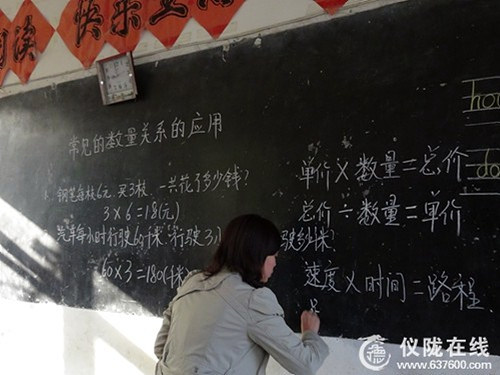 快乐
常见的数量关系的应用
钢笔每枝6元,买3枝,一共花了多少钱?
3×6=18(元)
汽车每小时行驶60千米,行驶3 驶多少千米?
60×3=180(千米)
单价×数量=总价
总价÷数量=单价
速度×时间=路程
hou
do
仪陇在线
www.637600.com